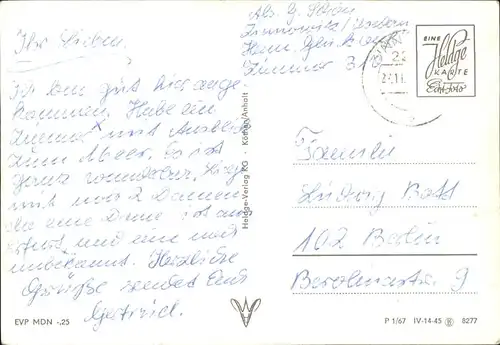 Abs. G.
Zinnowitz / Usedom
Zimmer 310
Ihr Lieben.
Ich bin gut hier ange-
kommen. Habe ein
Zimmer mit Ausblick
zum Meer. Es ist
ganz wunderbar. Liege
mit noch 2 Damen
da eine Dame ist aus
Erfurt und eine noch
unbekannt. Herzliche
Grüße sendet Euch
Gertrud.
EINE
Heldge
KARTE
Echt Foto
Heldge-Verlag KG · Köthen/Anhalt
Familie
Ludwig
102 Berlin
Berolinastr. 9
EVP MDN -.25
P 1/67 IV-14-45 8277